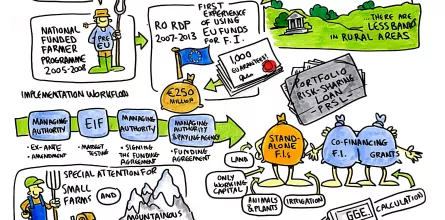 NATIONAL
FUNDED
FARMER
PROGRAMME
2005-2008
PRE
EU
RO RDP
2007-2013
FIRST
EXPERIENCE
OF USING
EU FUNDS
FOR F.I.
1,000
GUARANTEES
...THERE ARE
LESS BANKS
IN RURAL AREAS
€250
MILLION
PORTFOLIO
RISK-SHARING
LOAN
PRSL
IMPLEMENTATION WORKFLOW
MANAGING
AUTHORITY
EIF
MANAGING
AUTHORITY
MANAGING
AUTHORITY
& PAYING AGENCY
- EX-ANTE
- AMENDMENT
- MARKET
TESTING
- SIGNING
THE FUNDING
AGREEMENT
- FUNDING
AGREEMENT
STAND-
ALONE
F.I.s
CO-FINANCING
F.I. GRANTS
LAND
ONLY
WORKING
CAPITAL
ANIMALS
& PLANTS
IRRIGATION
SPECIAL ATTENTION FOR
SMALL
FARMS
AND
MOUNTAINOUS
GGE
CALCULATION